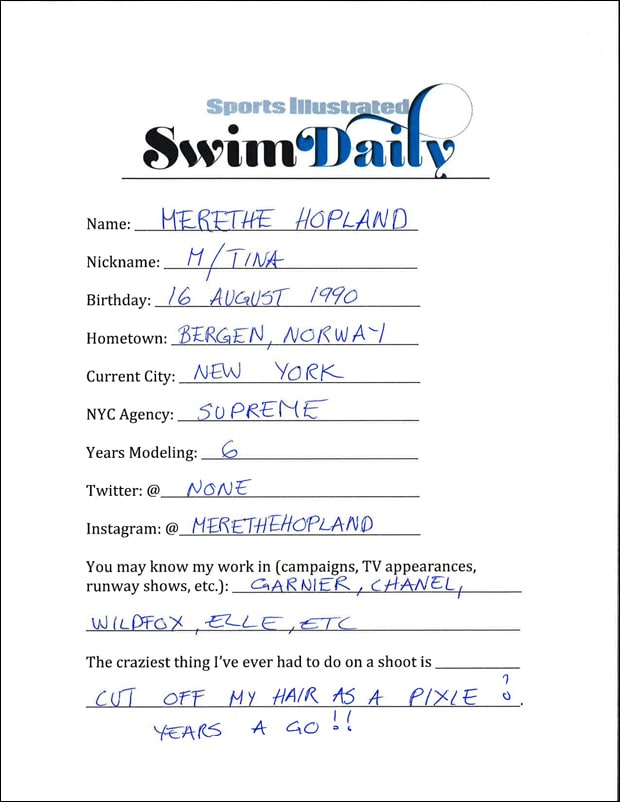 Sports Illustrated
Swim Daily
Name: MERETHE HOPLAND
Nickname: M/TINA
Birthday: 16 AUGUST 1990
Hometown: BERGEN, NORWAY
Current City: NEW YORK
NYC Agency: SUPREME
Years Modeling: 6
Twitter: @ NONE
Instagram: @ MERETHEHOPLAND
You may know my work in (campaigns, TV appearances,
runway shows, etc.): GARNIER, CHANEL,
WILDFOX, ELLE, ETC
The craziest thing I've ever had to do on a shoot is
CUT OFF MY HAIR AS A PIXLE ?.
YEARS A GO!!